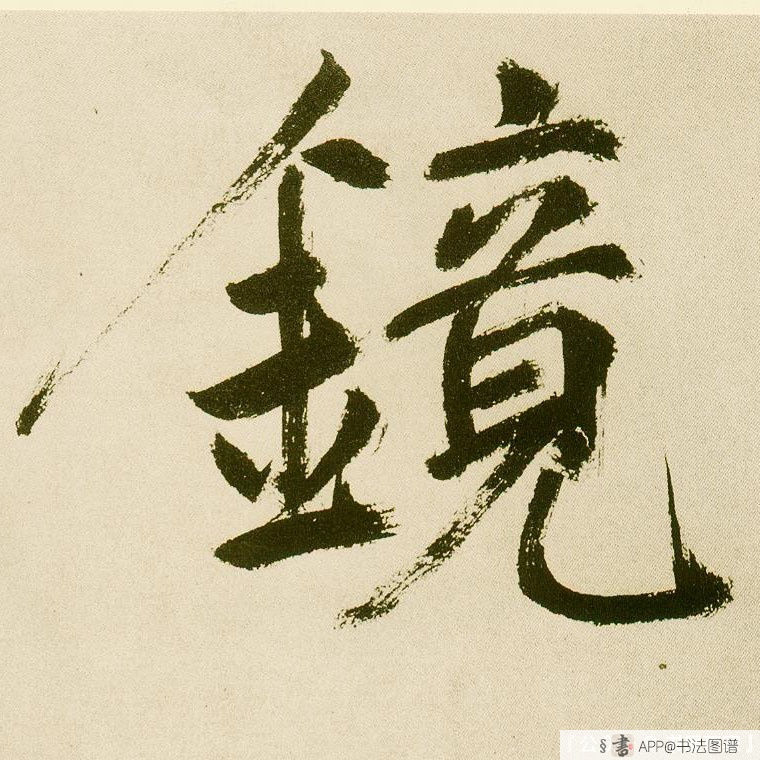 鏡
書 APP@书法图谱